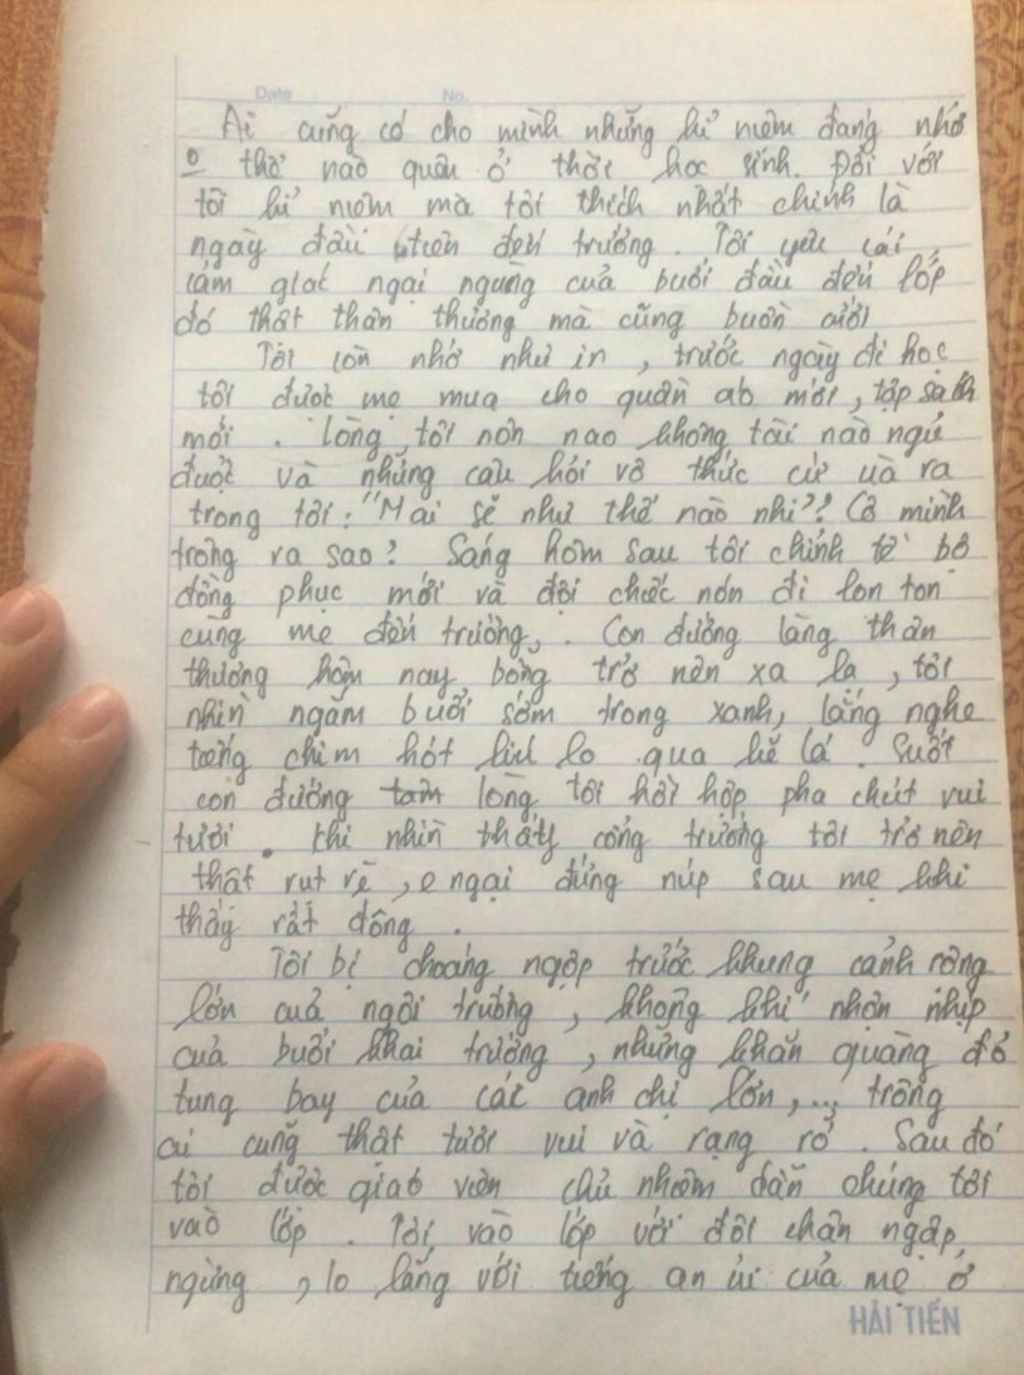 Date No.
Ai cũng có cho mình những kỉ niệm đáng nhớ
thể nào quên ở thời học sinh. Đối với
tôi kỉ niệm mà tôi thích nhất chính là
ngày đầu tiên đến trường. Tôi yêu cái
cảm giác ngại ngùng của buổi đầu đến lớp
đó thật thân thương mà cũng buồn cười
Tôi còn nhớ như in, trước ngày đi học
tôi được mẹ mua cho quần áo mới, tập sách
mới. lòng tôi nôn nao không tài nào ngủ
được và những câu hỏi vô thức cứ ùa ra
trong tôi: "Mai sẽ như thế nào nhỉ"? Cô mình
trông ra sao? Sáng hôm sau tôi chỉnh tề bộ
đồng phục mới và đội chiếc nón đi lon ton
cùng mẹ đến trường,. Con đường làng thân
thương hôm nay bỗng trở nên xa lạ, tôi
nhìn ngắm buổi sớm trong xanh, lắng nghe
tiếng chim hót líu lo qua kẽ lá. Suốt
con đường tâm lòng tôi hồi hộp pha chút vui
tươi. Khi nhìn thấy cổng trường tôi trở nên
thật rụt rè, e ngại đứng núp sau mẹ khi
thấy rất đông.
Tôi bị choáng ngợp trước khung cảnh rộng
lớn của ngôi trường, không khí nhộn nhịp
của buổi khai trường, những khăn quàng đỏ
tung bay của các anh chị lớn,..., trông
ai cũng thật tươi vui và rạng rỡ. Sau đó
tôi được giáo viên chủ nhiệm dẫn chúng tôi
vào lớp. Tôi vào lớp với đôi chân ngập
ngừng, lo lắng với tiếng an ủi của mẹ ở
HẢI TIẾN